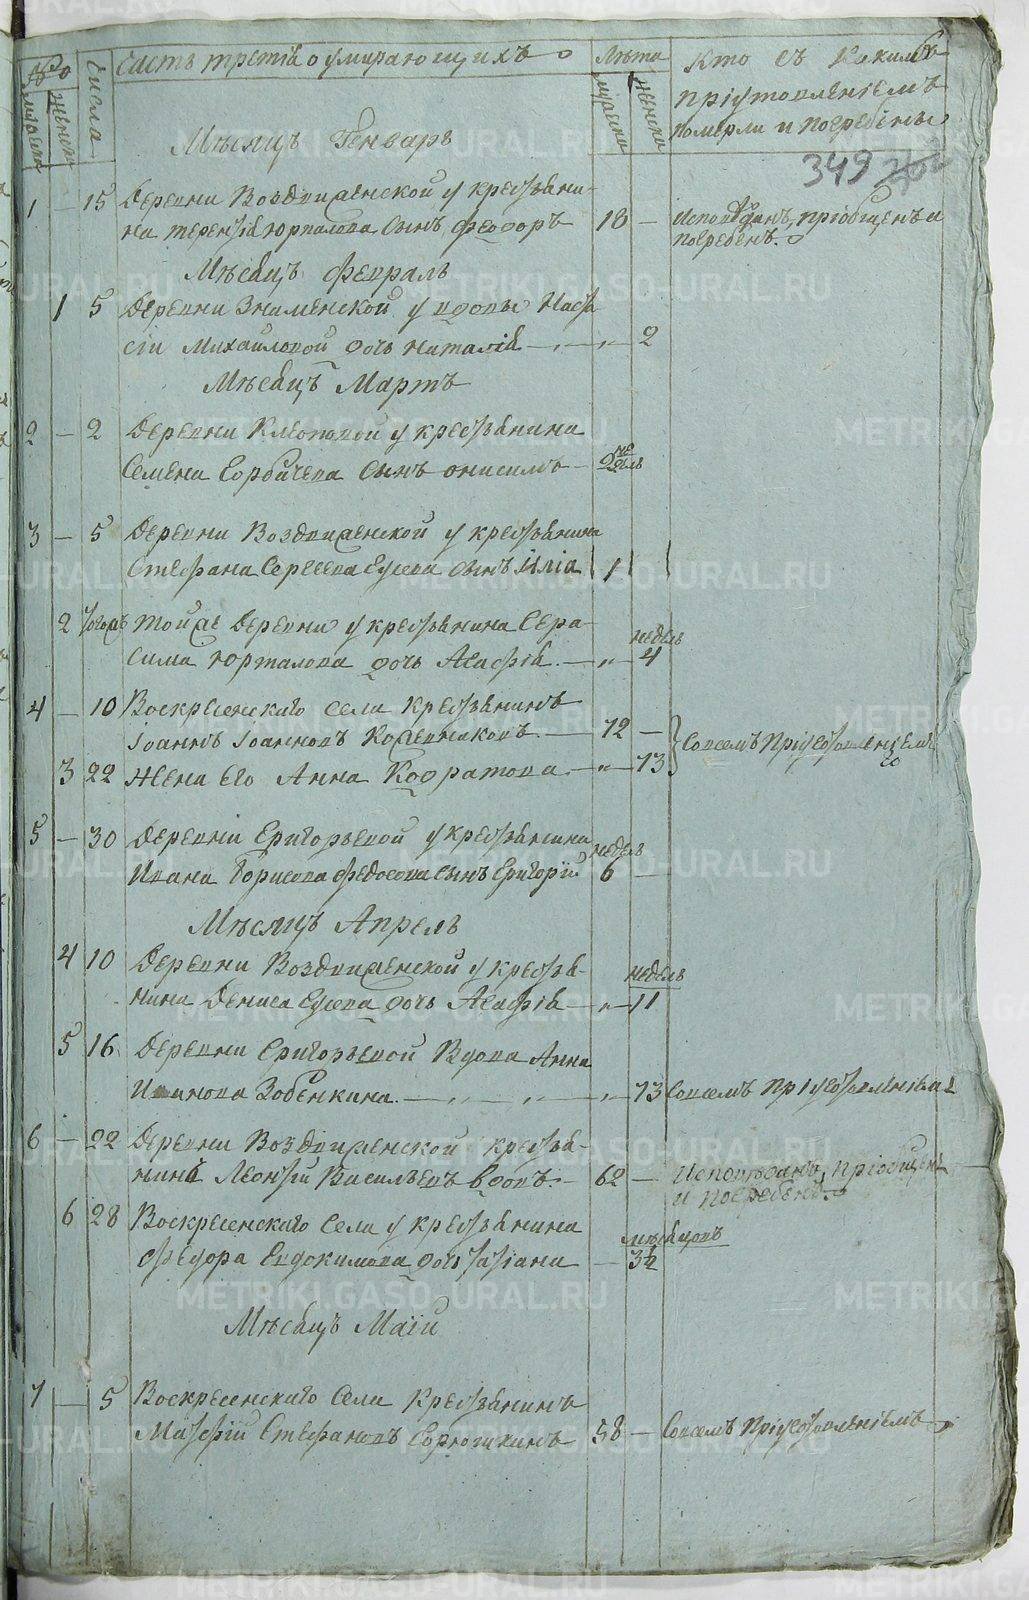 №
мужеска
женска
Числа
Часть третія о умирающихъ
Лѣта
мужеска
женска
Кто съ какимъ
пріуготовленіемъ
померли и погребены
349
Мѣсяцъ Генварь
1 – 15 Деревни Воздвиженской у крестьяни-
на Терентія Юрталова сынъ Феодоръ 18 – Исповѣданъ, пріобщенъ и
погребенъ.
Мѣсяцъ Февраль
1 5 Деревни Знаменской у вдовы Наста
сіи Михайловой дочь Наталія – „ – 2
Мѣсяцъ Мартъ
2 – 2 Деревни Клеопиной у крестьянина
Семена Горбачева сынъ Онисимъ – 2 не
дѣль
3 – 5 Деревни Воздвиженской у крестьянина
Стефана Сергеева Гусева сынъ Иліа 1
2 того жъ Той же деревни у крестьянина Гера-
сима Юрталова дочь Агафія – „ – недѣль 4
4 – 10 Воскресенскаго села крестьянинъ
Іоаннъ Іоанновъ Кожевниковъ – 72 –
3 22 Жена его Анна Кодратова – „ – 73 Со всемъ пріуготовленіем
5 – 30 Деревни Григорьевой у крестьянина
Ивана Борисова Федосова сынъ Григорій недѣль 6 –
Мѣсяцъ Апрель
4 10 Деревни Воздвиженской у крестья-
нина Дениса Гусева дочь Агафія – „ – недѣль 11
5 16 Деревни Григорьевой вдова Анна
Иванова Зобенкина – „ – „ – „ – 73 Со всемъ пріуготовленіем
6 – 22 Деревни Воздвиженской крестья-
нинъ Леонтій Васильевъ вдовъ. – 62 – Исповѣданъ, пріобщенъ
и погребенъ
6 28 Воскресенскаго села у крестьянина
Федора Евдокимова дочь Татіана – мѣсяцовъ 3½
Мѣсяцъ Маій
7 – 5 Воскресенскаго села крестьянинъ
Матфій Стефановъ Горюшкинъ 58 – Со всемъ пріуготовленіемъ
METRIKI.GASO-URAL.RU